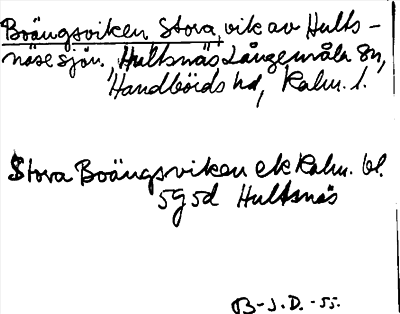 Boängsviken, Stora, vik av Hults-
näsesjön. Hultsnäs Långemåla sn,
Handbörds hd, Kalm. l.
Stora Boängsviken ek Kalm. bl.
5g5d Hultsnäs
B-J.D.-55.